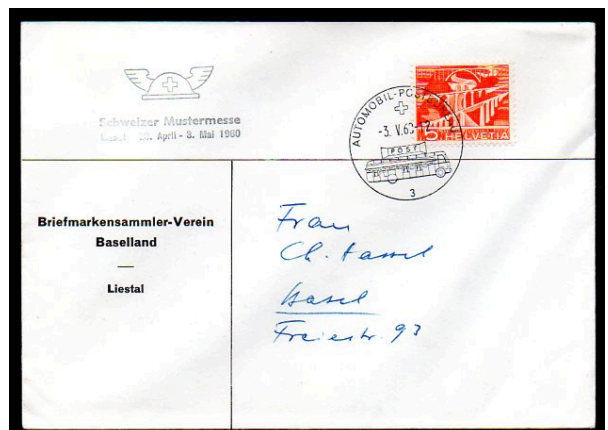 Schweizer Mustermesse
Basel 23. April - 3. Mai 1960
AUTOMOBIL-POSTBUREAU
-3. V. 60-12
POST
3
5 HELVETIA
Briefmarkensammler-Verein
Baselland
—
Liestal
Frau
Ch.
Basel
Freiestr. 93